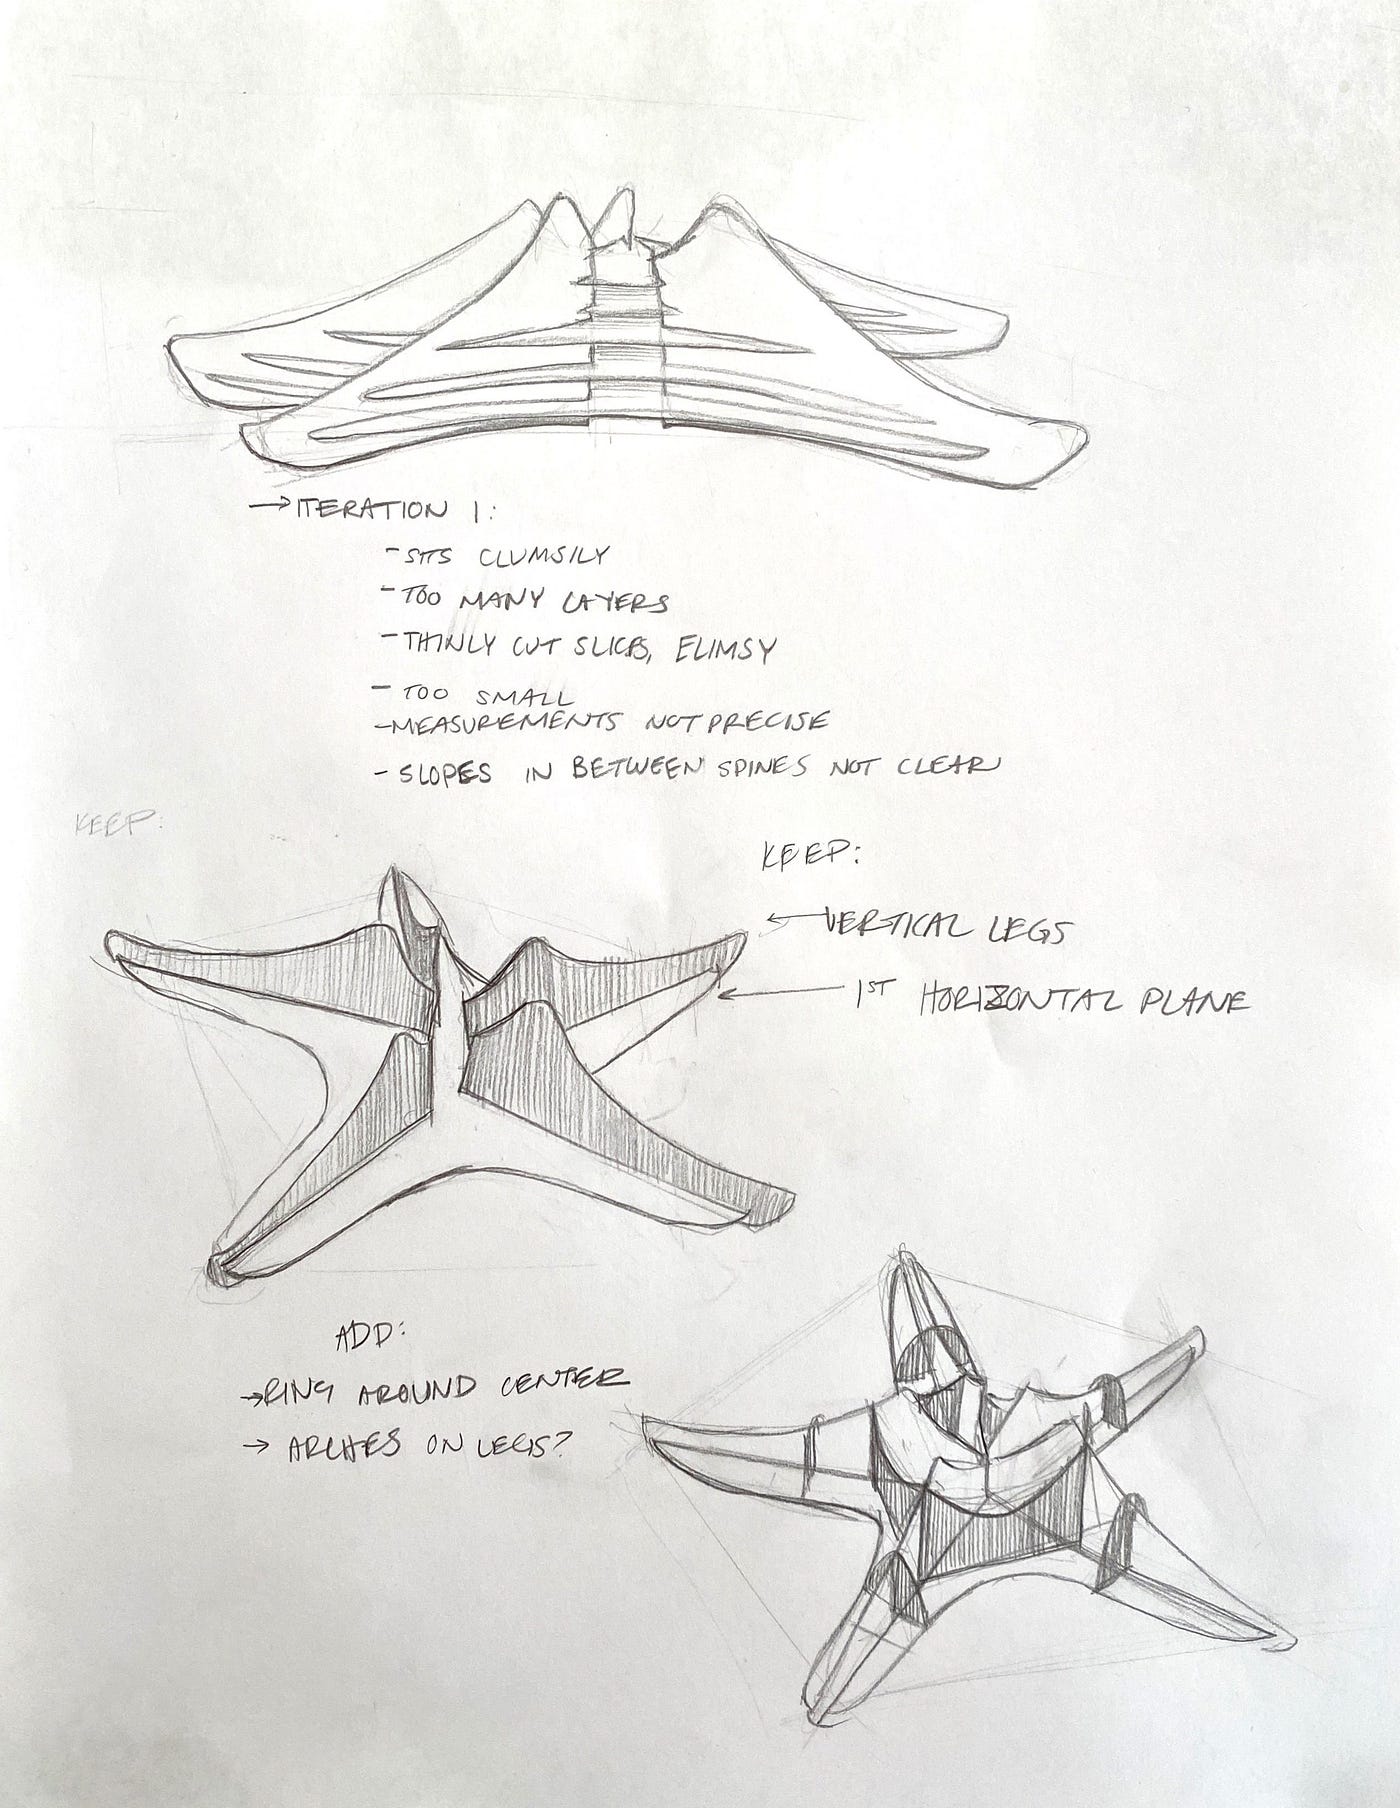 →ITERATION 1:
- SITS CLUMSILY
- TOO MANY LAYERS
- THINLY CUT SLICES, FLIMSY
- TOO SMALL
- MEASUREMENTS NOT PRECISE
- SLOPES IN BETWEEN SPINES NOT CLEAR
KEEP:
KEEP:
← VERTICAL LEGS
← 1ST HORIZONTAL PLANE
ADD:
→ RING AROUND CENTER
→ ARCHES ON LEGS?